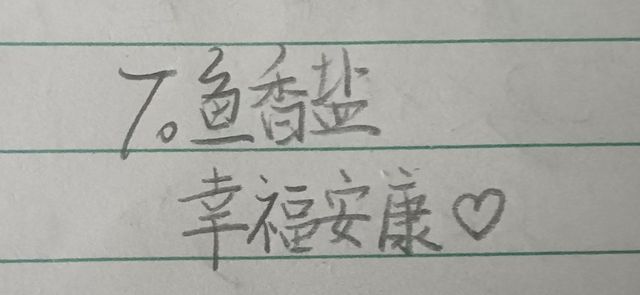 7。鱼香盐
幸福安康♡